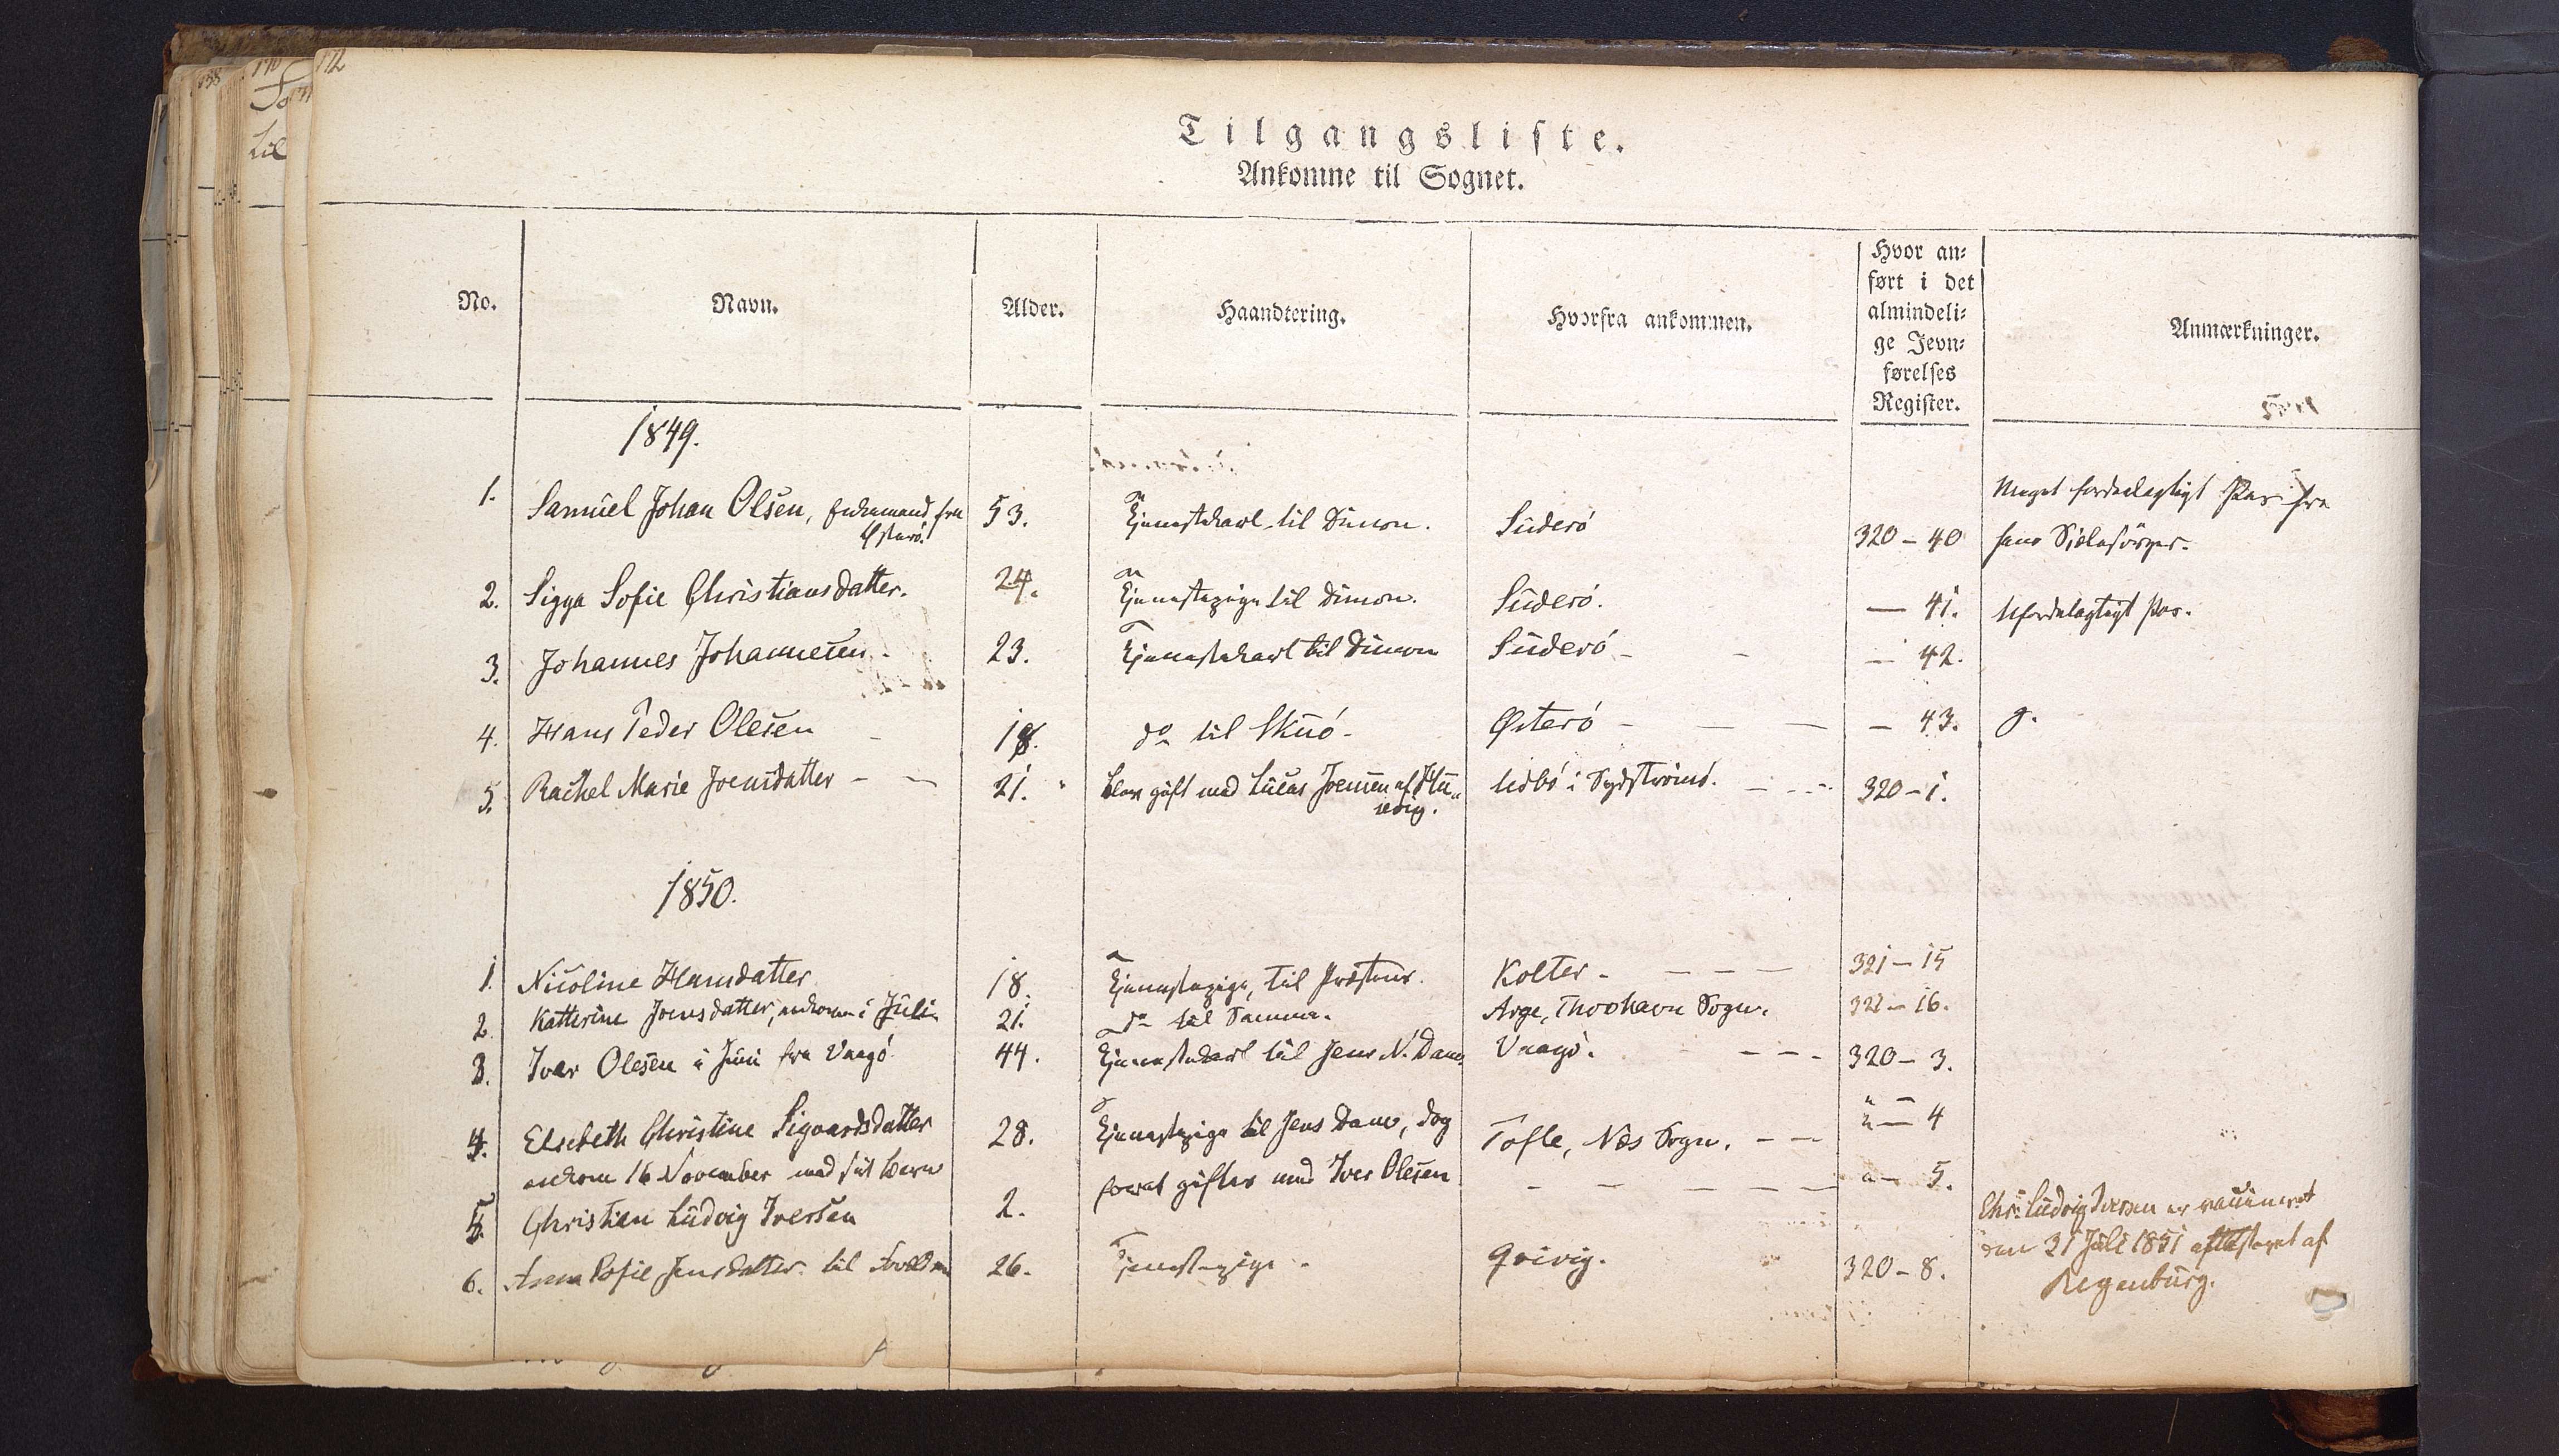 172
Tilgangsliste.
Ankomne til Sognet.
No.
Navn.
Alder.
Haandtering.
Hvorfra ankommen.
Hvor an-
ført i det
almindeli-
ge Jevn-
førelses
Register.
Anmærkninger.
1849.
1. Samuel Johan Olsen, Enkemand fra 53. Tjenestekarl til Dimon. Süderö 320-40 Meget fordeelagtigt Pas fra
Österö. hans Sjelesörger.
2. Sigga Sofie Christiansdatter. 24. Tjenestepige til Dimon. Süderö. — 41. Ufordelagtigt Pas.
3. Johannes Johannesen 23. Tjenestekarl til Dimon Süderö — 42.
4. Hans Peder Olesen 18. do til Skuö Österö — 43.
5. Rachel Marie Joensdatter 21. blev gift med Lucas Joensen af Hu- 320-1.
sevig.
1850.
1. Nicoline Hansdatter 18. Tjenestepige, til Kolter 321-15
2. Katterine Joensdatter, ankom i Juli 21. do til Samme. Arge, Thorshavn Sogn. 321-16.
3. Iver Olesen i Juni fra Vaagö 44. Tjenestekarl til Jens N. Dam Vaagö. 320-3.
4. Elsebeth Christine Sigvardsdatter 28. Tjenestepige til Jens Dam, dog Tofte, Næs Sogn. — 4
ankom 16 November med sit barn giftes med Iver Olesen — 5.
5. Christian Ludvig Iversen 2. Chr: Ludvig Iversen er vaccineret
den 31 Juli 1851 attesteret af
Regenburg.
6. Anna Sofie Jensdatter til 26. Tjenestepige Qvivig. 320-8.